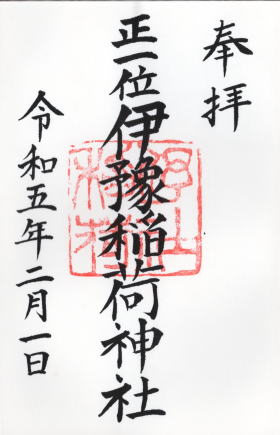 奉拝
正一位伊豫稲荷神社
令和五年二月一日